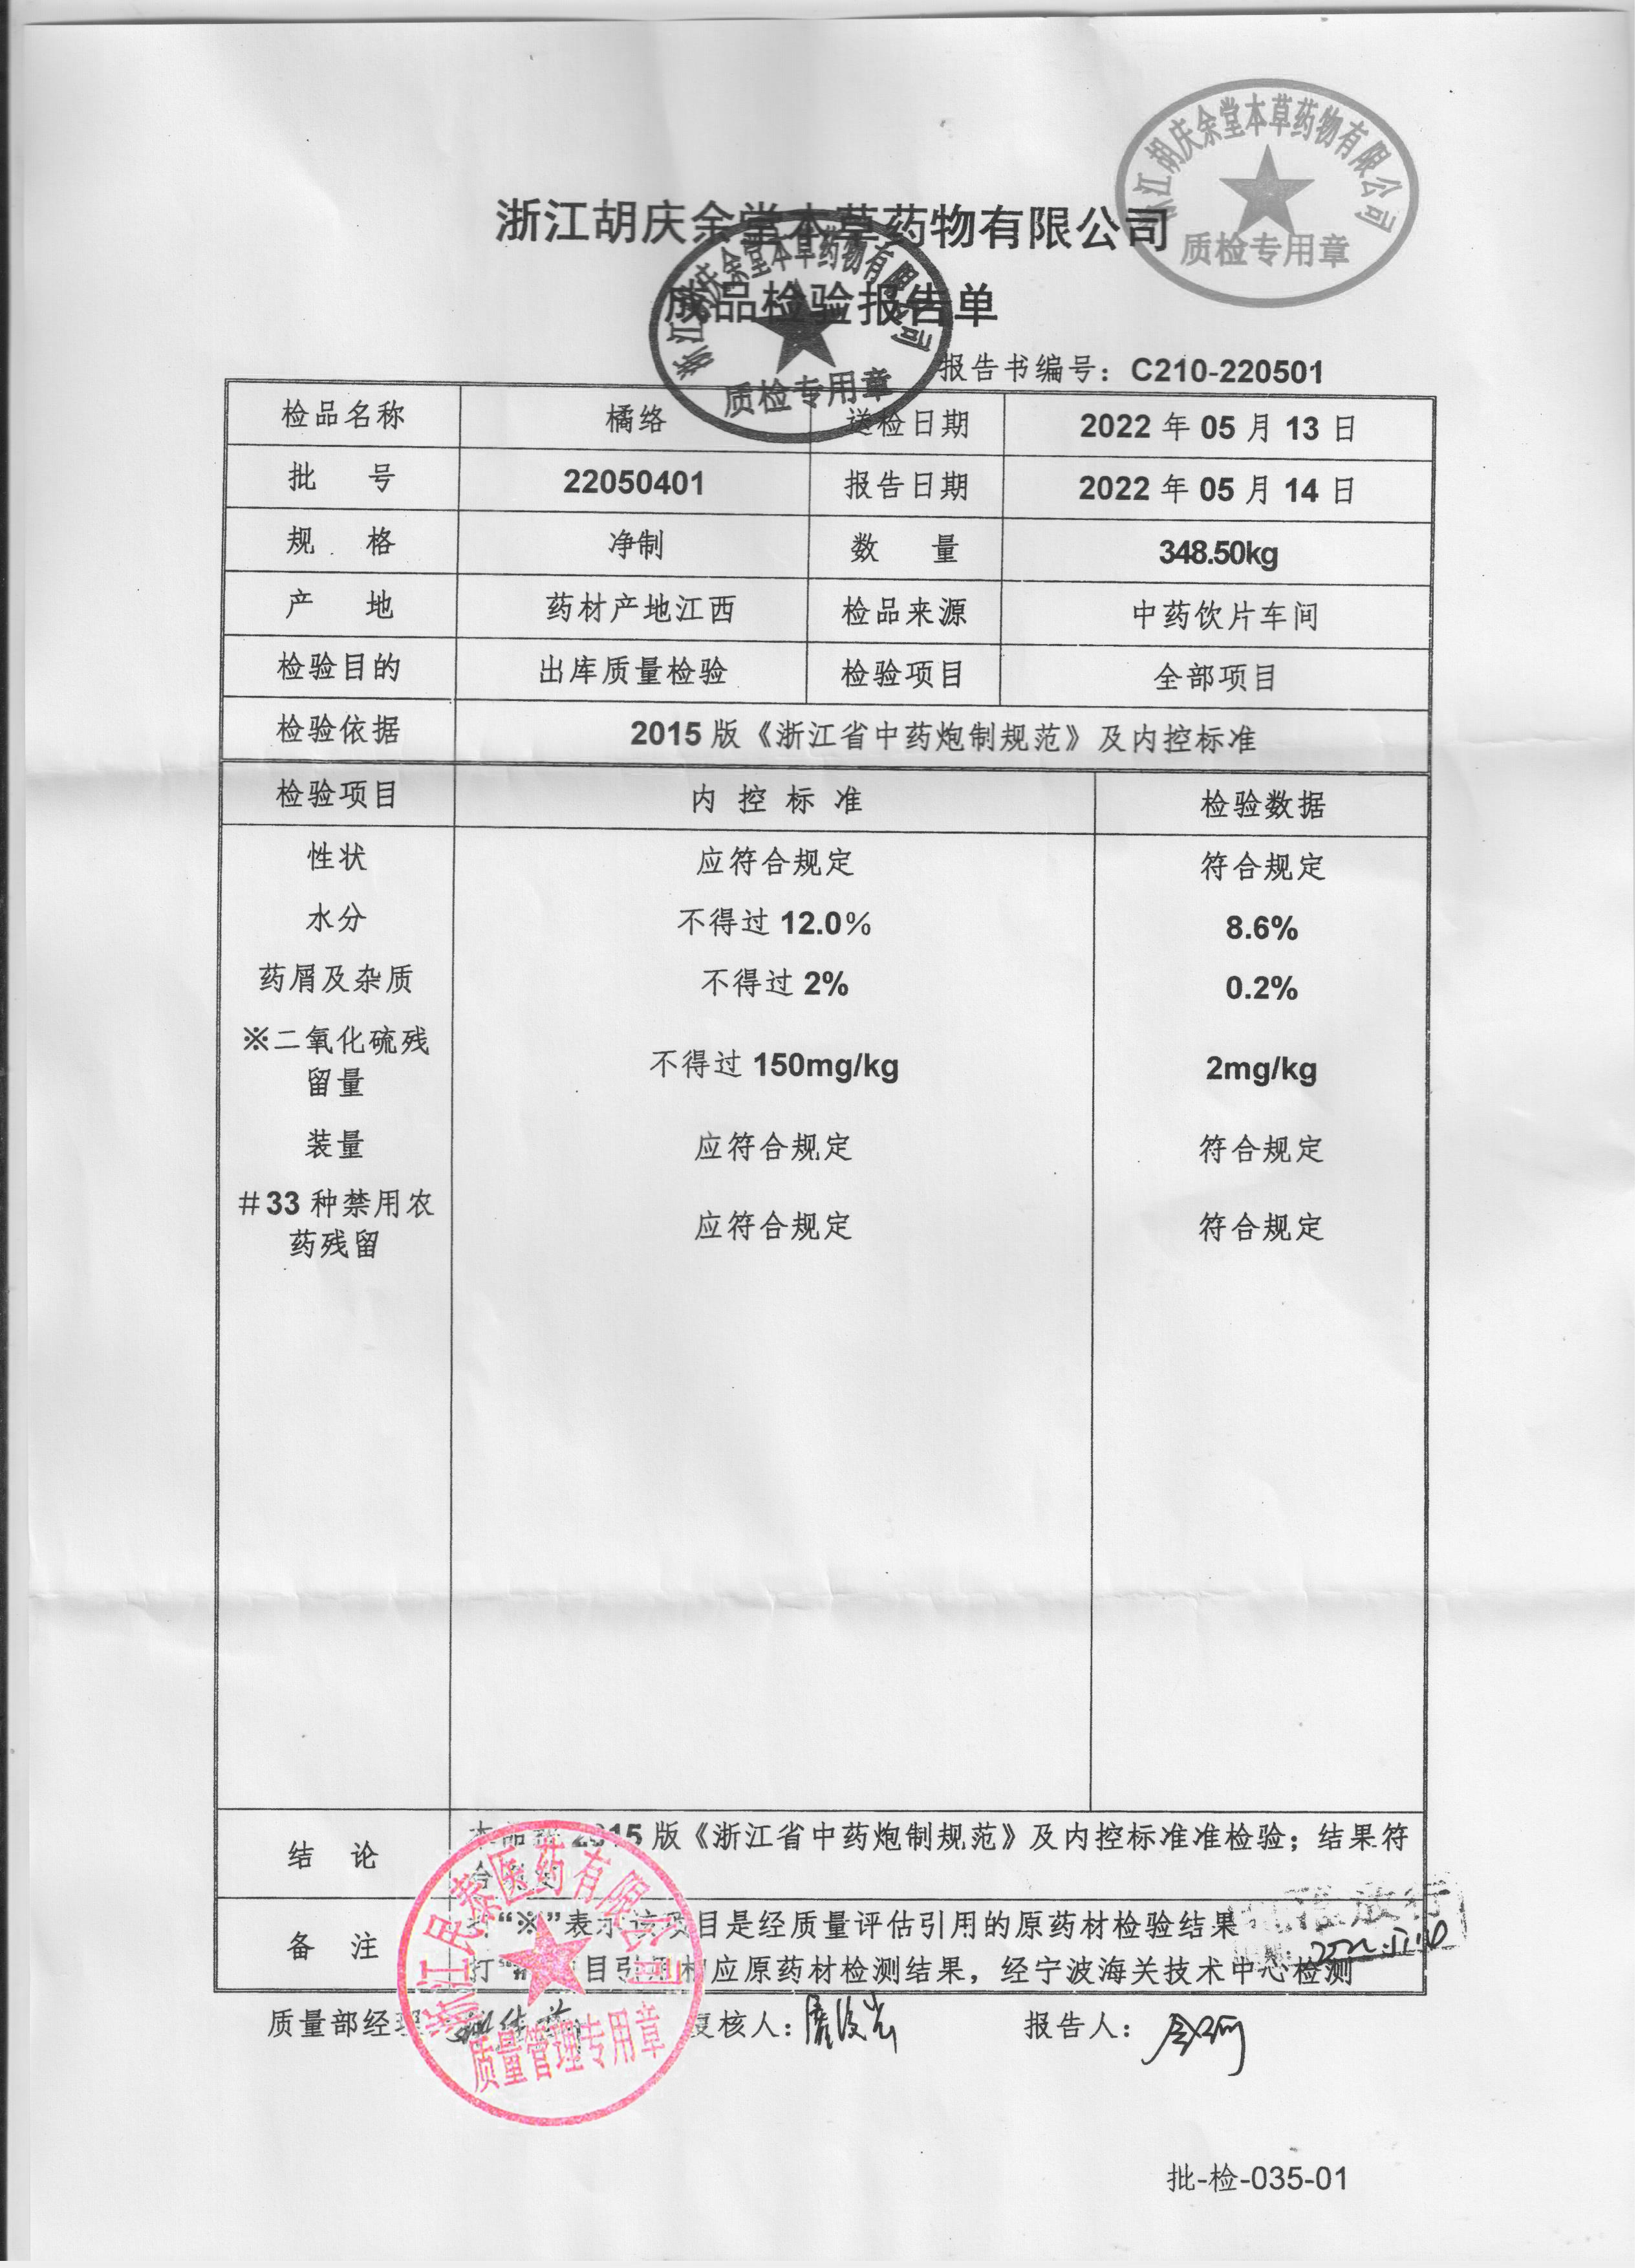 浙江胡庆余堂本草药物有限公司
质检专用章
浙江胡庆余堂本草药物有限公司
成品检验报告单
浙江胡庆余堂本草药物有限公司
质检专用章
报告书编号：C210-220501
检品名称 橘络 送检日期 2022 年 05 月 13 日
批 号 22050401 报告日期 2022 年 05 月 14 日
规 格 净制 数 量 348.50kg
产 地 药材产地江西 检品来源 中药饮片车间
检验目的 出库质量检验 检验项目 全部项目
检验依据 2015 版《浙江省中药炮制规范》及内控标准
检验项目 内 控 标 准 检验数据
性状 应符合规定 符合规定
水分 不得过 12.0% 8.6%
药屑及杂质 不得过 2% 0.2%
※二氧化硫残
留量 不得过 150mg/kg 2mg/kg
装量 应符合规定 符合规定
＃33 种禁用农
药残留 应符合规定 符合规定
结 论 本品按 2015 版《浙江省中药炮制规范》及内控标准准检验；结果符
合
备 注 打“※”表示该项目是经质量评估引用的原药材检验结果
打“#” 目引用相应原药材检测结果，经宁波海关技术中心检测
放行
浙江民泰医药有限公司
质量管理专用章
质量部经理 复核人： 报告人：
批-检-035-01